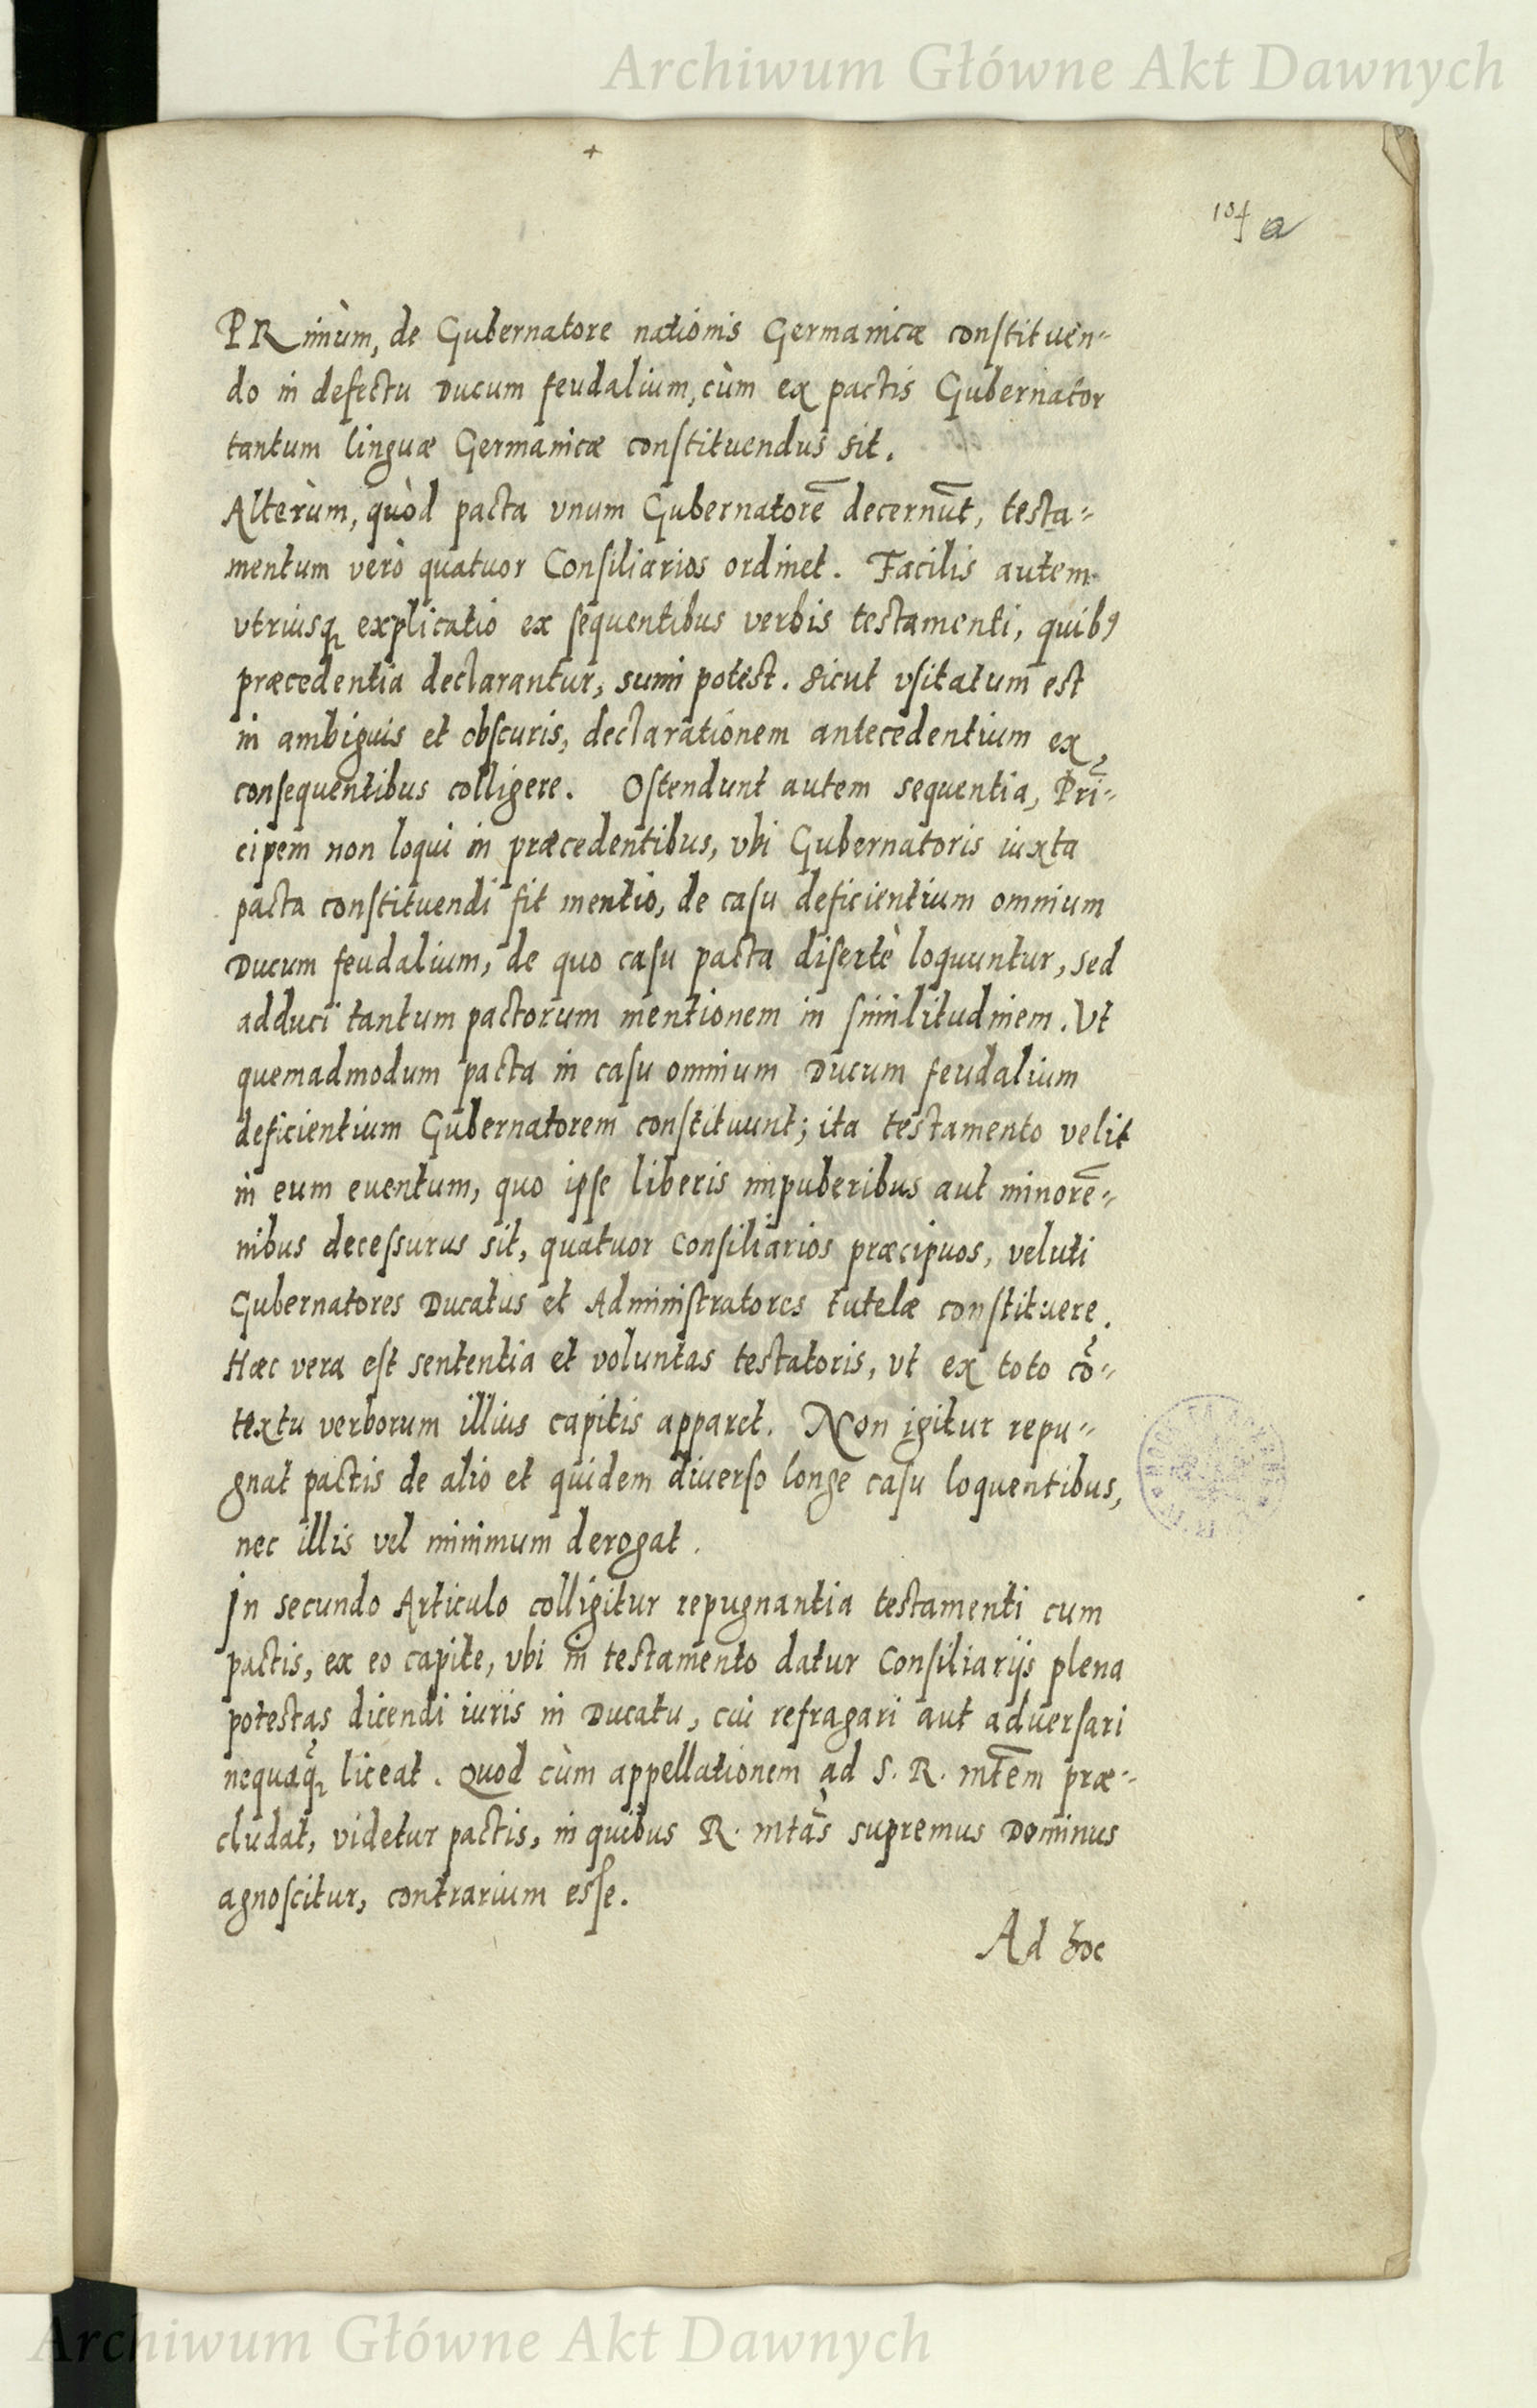 Archiwum Główne Akt Dawnych
104 a
PRimùm, de Gubernatore nationis Germanicæ constituen-
do in defectu Ducum feudalium, cùm ex pactis Gubernator
tantum linguæ Germanicæ constituendus sit.
Alterùm, quòd pacta vnum Gubernatorē decernūt, testa-
mentum verò quatuor Consiliarios ordinet. Facilis autem
vtriusq explicatio ex sequentibus verbis testamenti, quib9
præcedentia declarantur, sumi potest. Sicut vsitatum est
in ambiguis et obscuris, declarationem antecedentium ex
consequentibus colligere. Ostendunt autem sequentia, Prī-
cipem non loqui in præcedentibus, vbi Gubernatoris iuxta
pacta constituendi fit mentio, de casu deficientium omnium
Ducum feudalium, de quo casu pacta disertè loquuntur, sed
adduci tantum pactorum mentionem in similitudinem. Vt
quemadmodum pacta in casu omnium Ducum feudalium
deficientium Gubernatorem constituunt; ita testamento velit
in eum euentum, quo ipse liberis impuberibus aut minorē-
nibus decessurus sit, quatuor Consiliarios præcipuos, veluti
Gubernatores Ducatus et Administratores tutelæ constituere.
Hæc vera est sententia et voluntas testatoris, vt ex toto cō-
textu verborum illius capitis apparet. Non igitur repu-
gnat pactis de alio et quidem diuerso longe casu loquentibus,
nec illis vel minimum derogat.
In secundo Articulo colligitur repugnantia testamenti cum
pactis, ex eo capite, vbi in testamento datur Consiliarijs plena
potestas dicendi iuris in Ducatu, cui refragari aut aduersari
nequāq liceat. Quod cùm appellationem ad S. R. mtēm præ-
cludat, videtur pactis, in quibus R. mtās supremus Dominus
agnoscitur, contrarium esse.
Ad hoc
Archiwum Główne Akt Dawnych